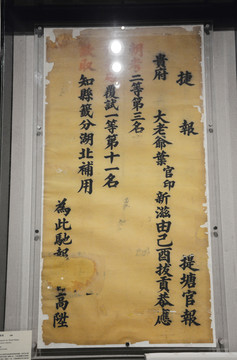 捷報
提塘官報
貴府大老爺葉官印新滋由己酉拔貢恭應
朝考二等第三名
欽取覆試一等第十一名
知縣籤分湖北補用
為此馳報
高陞